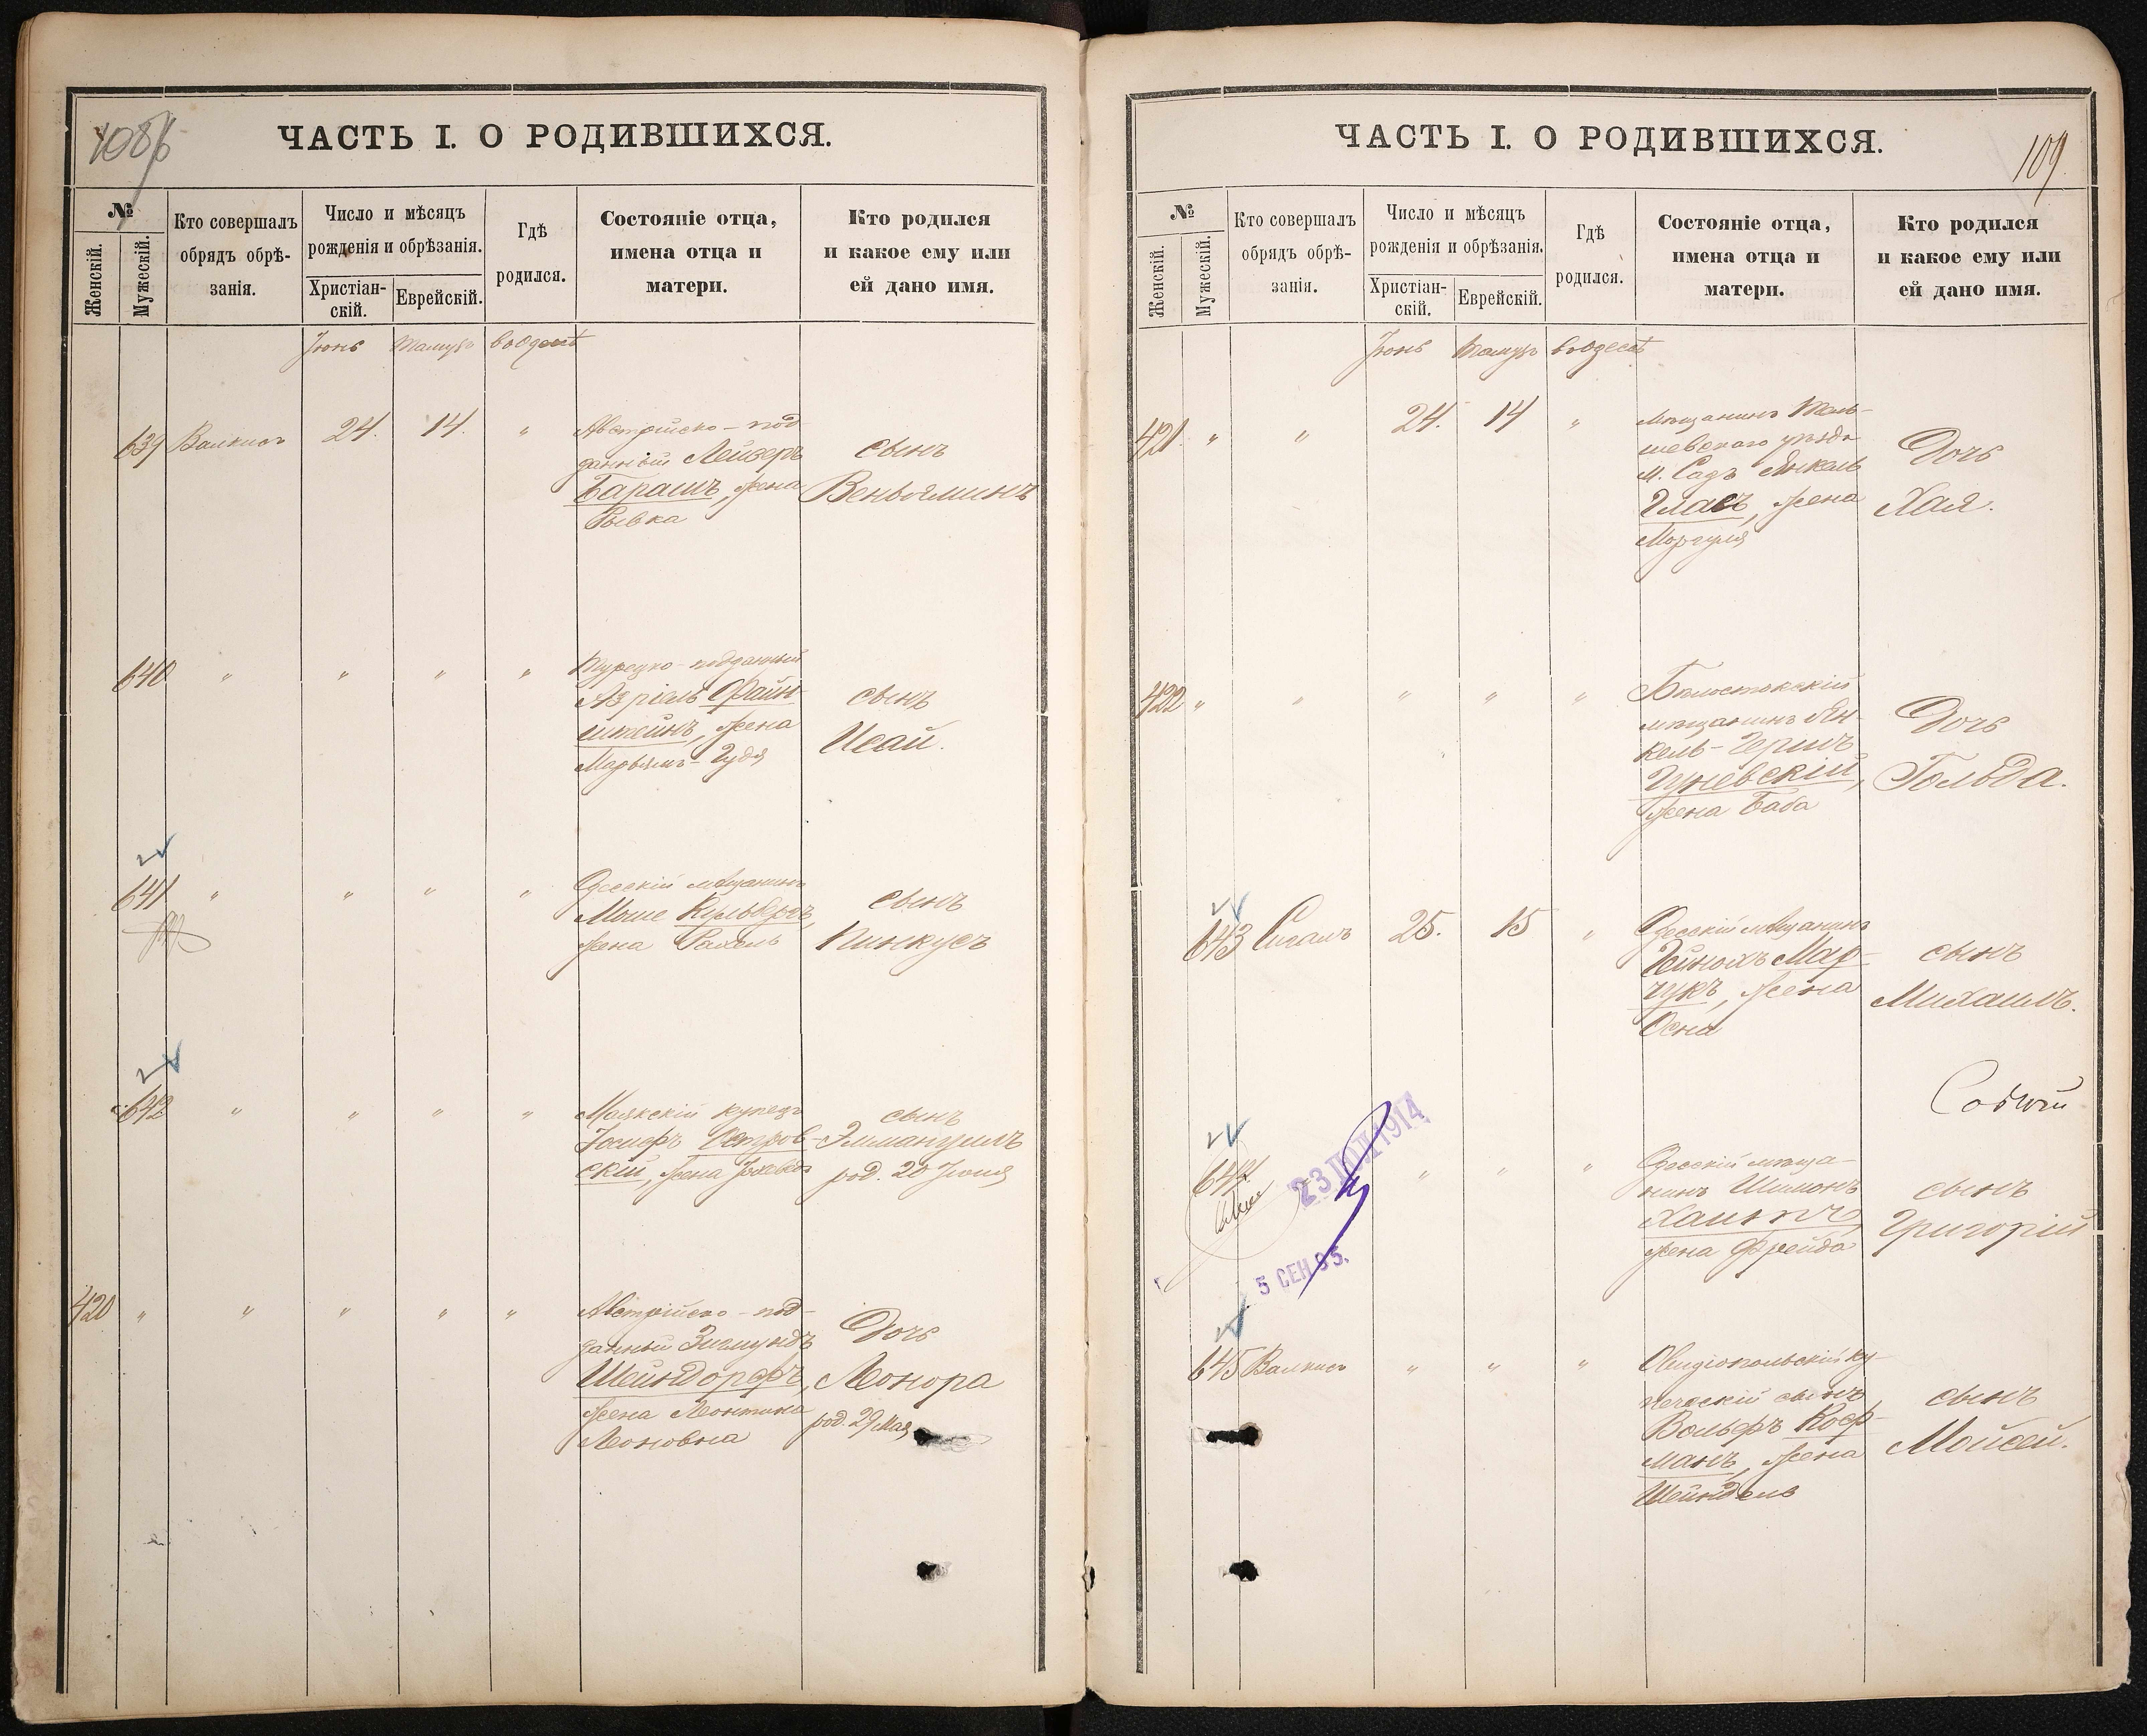 ЧАСТЬ I. О РОДИВШИХСЯ.
№
Женскій.
Мужескій.
Кто совершалъ
обрядъ обрѣ-
занія.
Число и мѣсяцъ
рожденія и обрѣзанія.
Христіан-
скій.
Еврейскій.
Гдѣ
родился.
Состояніе отца,
имена отца и
матери.
Кто родился
и какое ему или
ей дано имя.
Іюнь Тамузъ въ Одессѣ
639 Валкисъ 24. 14. "
Австрійско-под
данный Лейзеръ
Барашъ, жена
Рывка
сынъ
Веньяминъ
640 " " " "
Турецко-подданный
Азріель Файн-
штейнъ, жена
Марьямъ-Гудя
сынъ
Исай.
641 " " " "
Одесскій мѣщанинъ
Моше Кульбергъ,
жена Рахель
сынъ
Пинкусъ
642 " " " "
Маякскій купецъ
Іосифъ Петров-
скій, жена
сынъ
Эммануилъ
род. 20 Іюня
420 " " " " "
Австрійско-под-
данный Зигмундъ
Шейндорфъ,
жена Леонтина
Леоновна
Дочь
Леонора
род. 29 Мая
ЧАСТЬ I. О РОДИВШИХСЯ.
109.
№
Женскій.
Мужескій.
Кто совершалъ
обрядъ обрѣ-
занія.
Число и мѣсяцъ
рожденія и обрѣзанія.
Христіан-
скій.
Еврейскій.
Гдѣ
родился.
Состояніе отца,
имена отца и
матери.
Кто родился
и какое ему или
ей дано имя.
Іюнь Тамузъ въ Одессѣ
421 " " 24. 14 "
Мѣщанинъ Тель-
шевскаго уѣзда
м. Сядъ Янкель
Гласъ, жена
Моргуля
Дочь
Хая.
422 " " " " "
Бѣлостокскій
мѣщанинъ Ян-
кель-Гершъ
жена Баба
Дочь
Гольда.
643 Сигалъ 25. 15 "
Одесскій мѣщанинъ
Гейнохъ Мар-
чукъ, жена
Осна
сынъ
Михаилъ.
644 " " "
23 1914
5 СЕН 95.
Одесскій мѣща-
нинъ Шимонъ
жена Фрейда
сынъ
Григорій
645 Валкисъ " " "
Овидіопольскій ку-
печескій сынъ
Вольфъ Коф-
манъ, жена
Шейндель
сынъ
Мойсей.